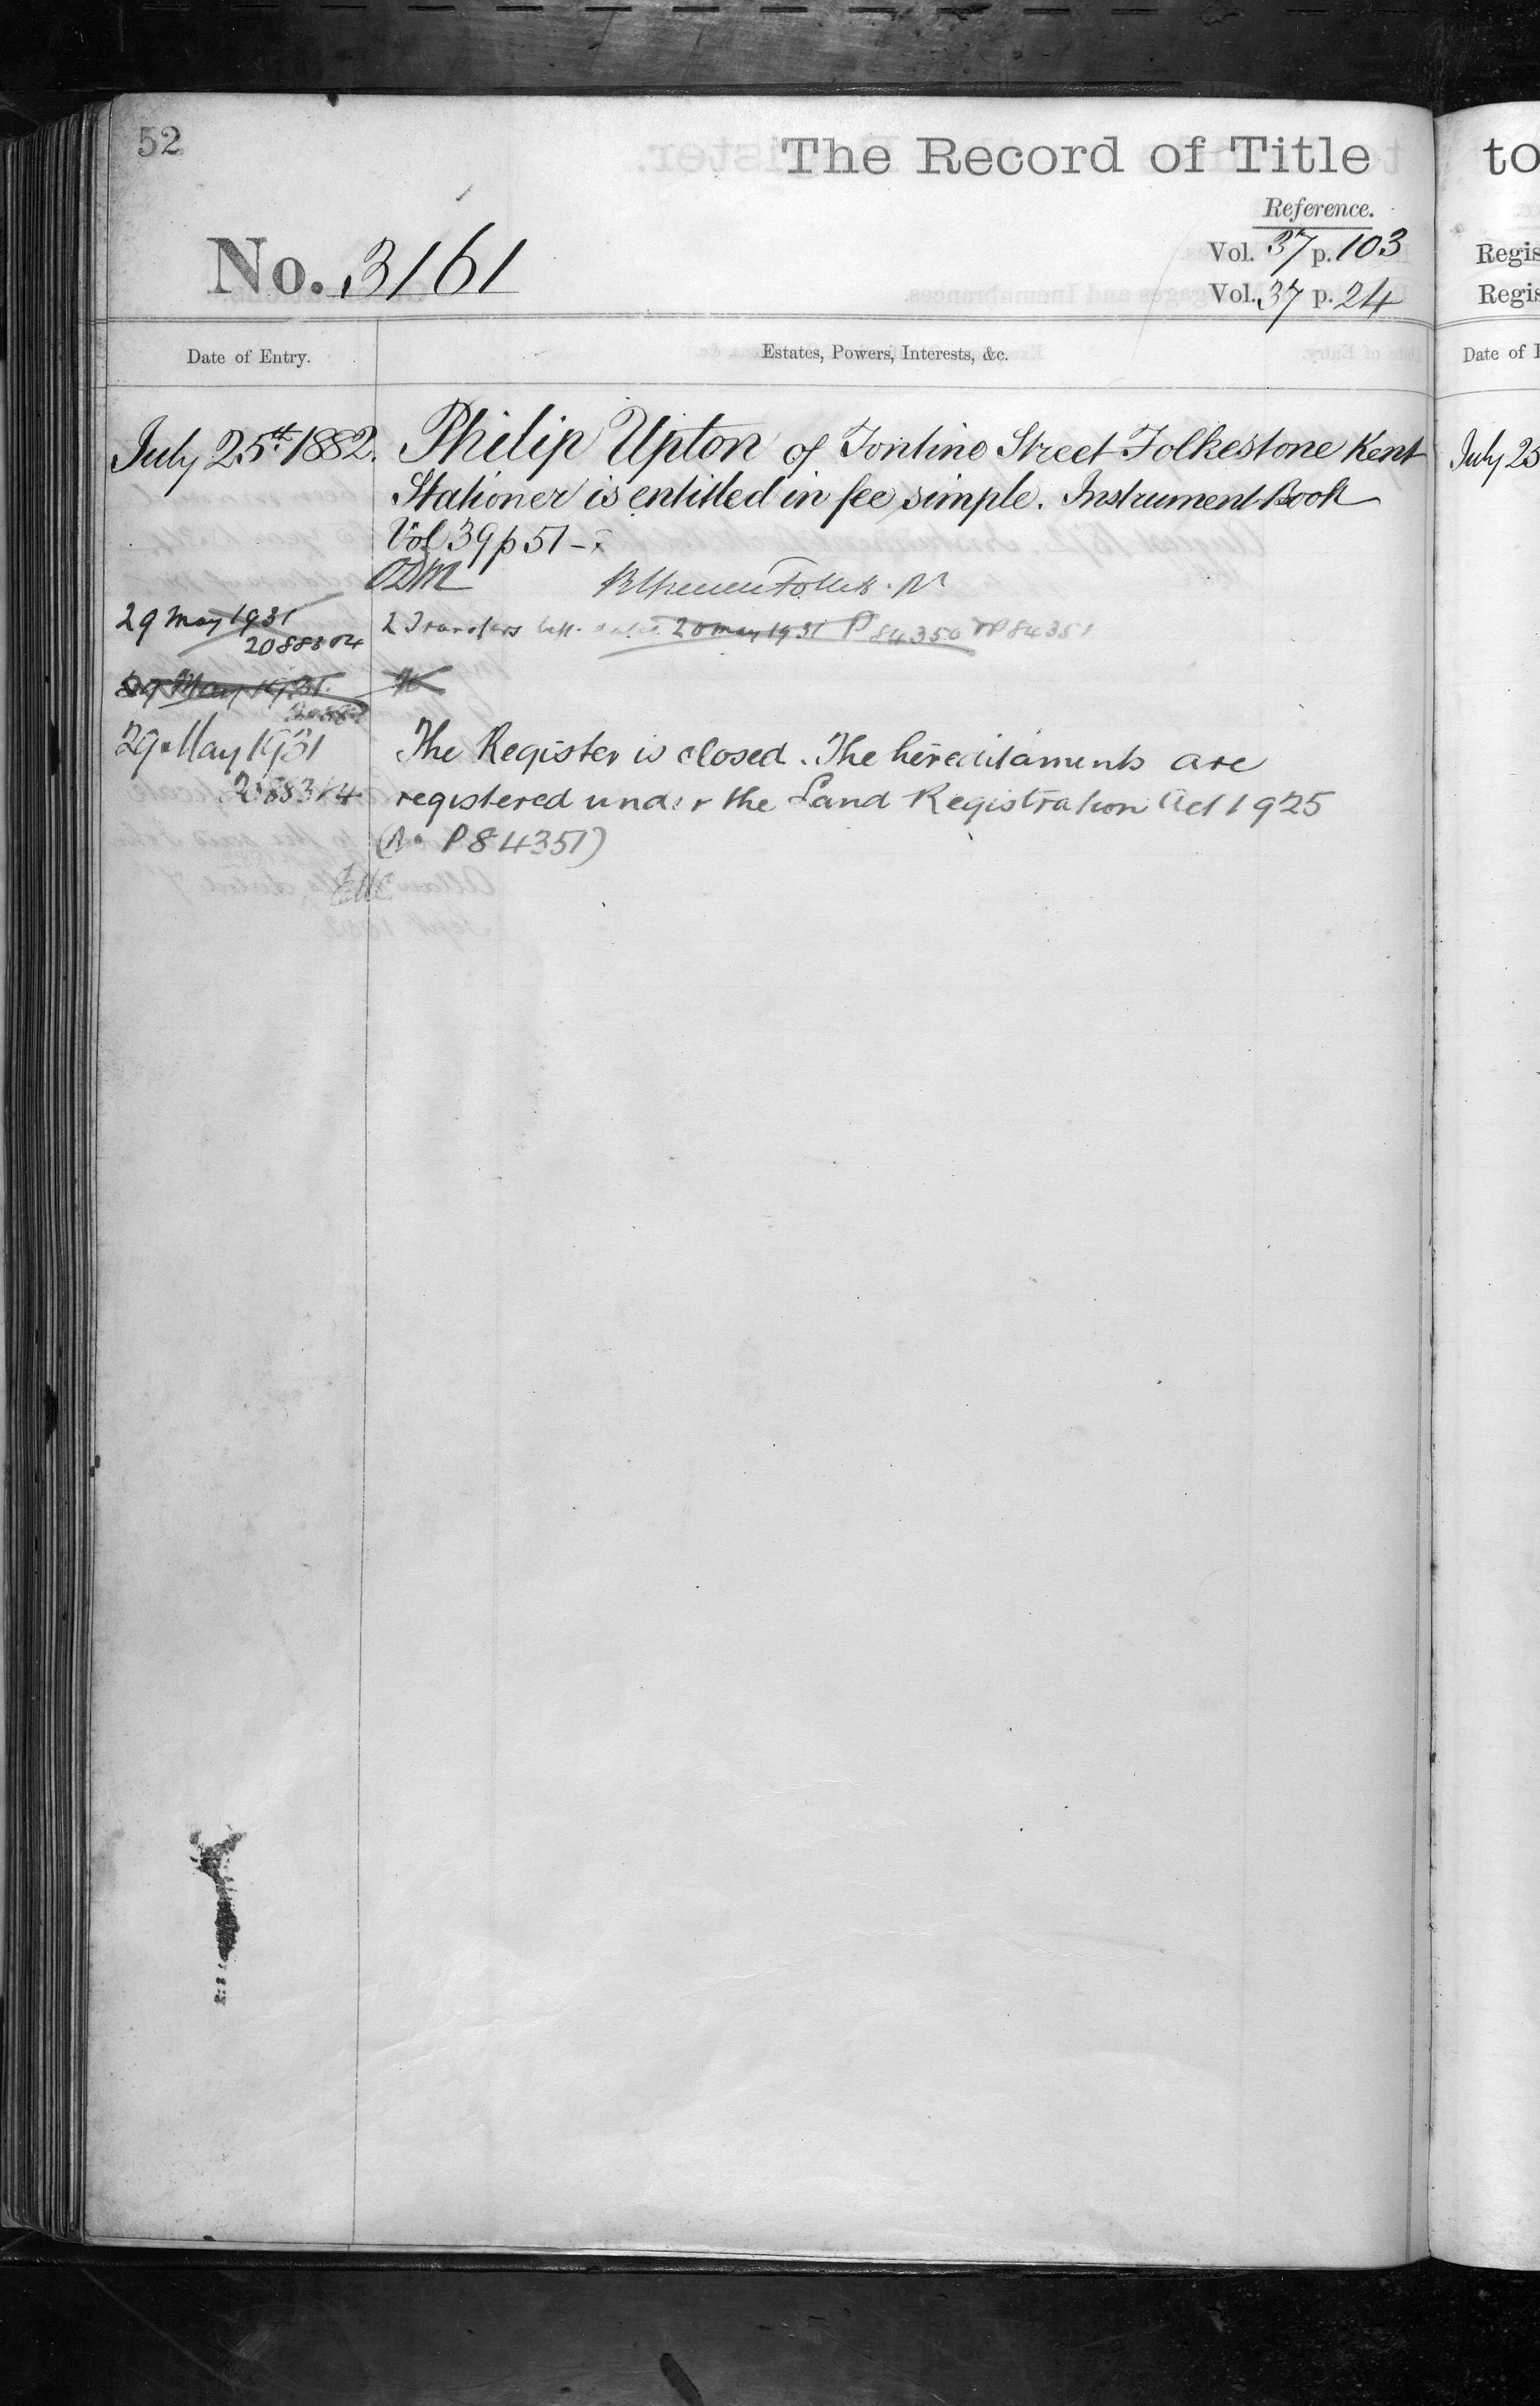 52
The Record of Title
to
Reference.
No. 3161
Vol. 37 p. 103
Vol. 37 p. 24
Regis
Regis
Date of Entry.
Estates, Powers, Interests, &c.
Date of E
July 25th 1882. Philip Upton of Tontine Street Folkestone Kent
July 25
Stationer is entitled in fee simple. Instrument Book
Vol 39 p 51
29 May 1931
2 Transfers 20 May 1931 P84350 P84351
29 May 1931.
29 May 1931
The Register is closed. The hereditaments are
registered under the Land Registration Act 1925
(No P84351)